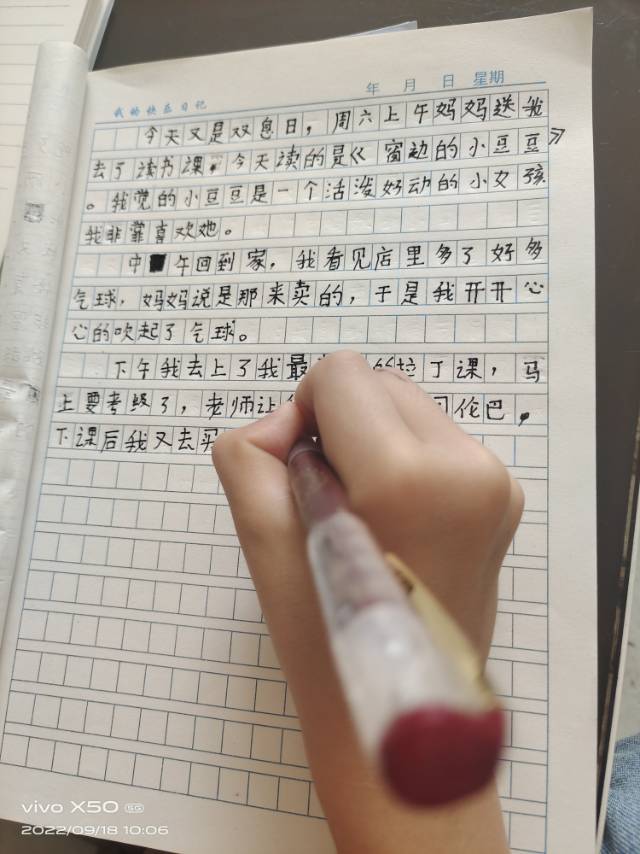 我的快乐日记
年 月 日 星期
今天又是双息日，周六上午妈妈送我
去了读书课，今天读的是《窗边的小豆豆》
。我觉的小豆豆是一个活泼好动的小女孩
我非常喜欢她。
中午回到家，我看见店里多了好多
气球，妈妈说是那来卖的，于是我开开心
心的吹起了气球。
下午我去上了我最 的拉丁课，马
上要考级了，老师让 伦巴，
下课后我又去买
vivo X50 5G
2022/09/18 10:06